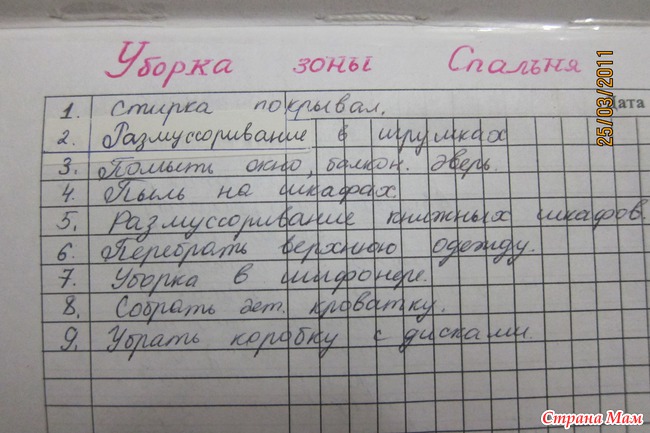 Уборка зоны Спальня
Дата
1. Стирка покрывал.
2. Размуссоривание в игрушках
3. Помыть окно, балкон. дверь.
4. Пыль на шкафах.
5. Размуссоривание книжных шкафов.
6. Перебрать верхнюю одежду.
7. Уборка в шифонере.
8. Собрать дет. кроватку.
9. Убрать коробку с дисками.
25/03/2011
Страна Мам